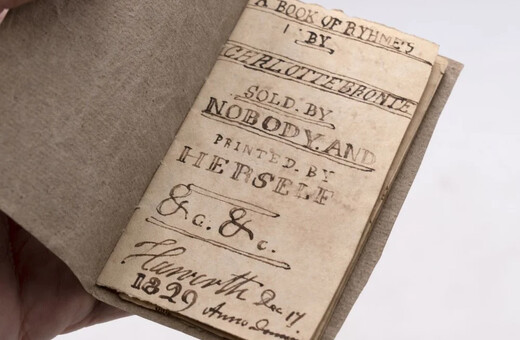 A BOOK OF RYHMES
BY
CHARLOTTE BRONTE
SOLD. BY
NOBODY. AND
PRINTED. BY
HERSELF
&c. &c.
Haworth Dec 17
1829 Anno